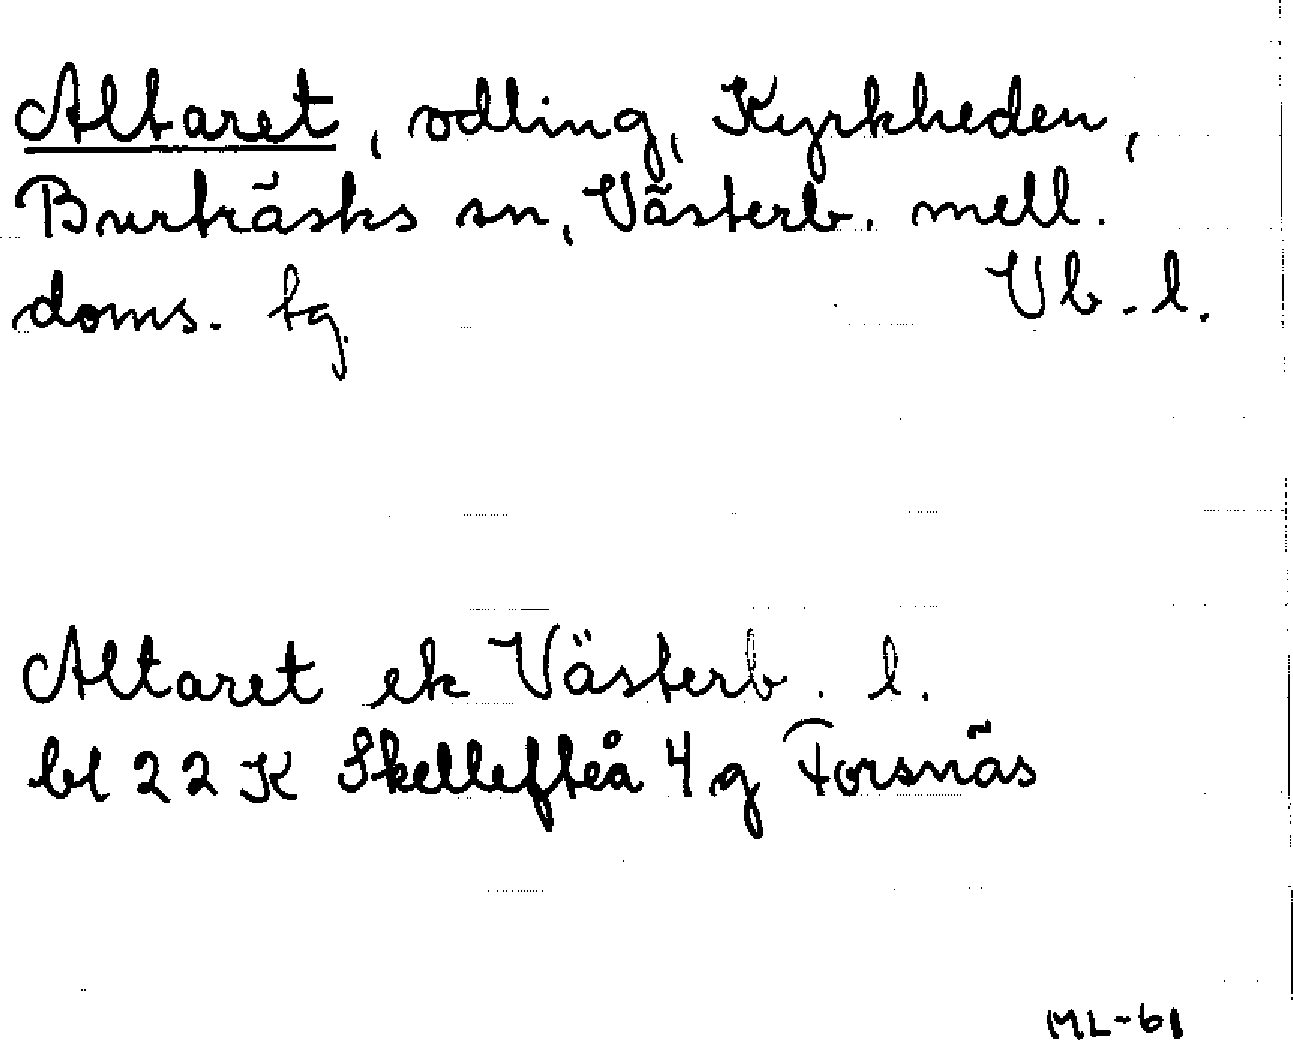 Altaret, odling, Kyrkheden,
Burträsks sn, Västerb. mell.
doms. tg Vb. l.
Altaret ek Västerb. l.
bl 22 K Skellefteå 4 g Forsnäs
ML-61